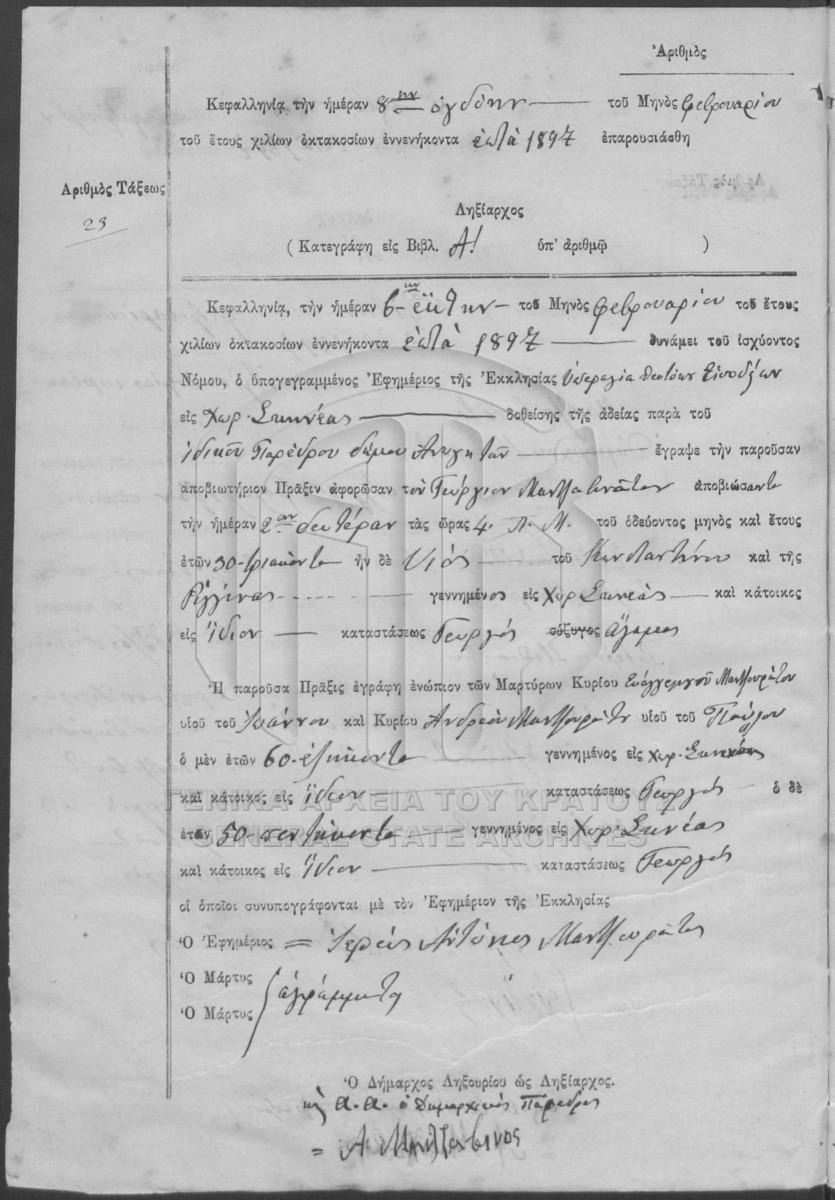 Ἀριθμὸς
Κεφαλληνίᾳ τὴν ἡμέραν 8ην ὀγδόην τοῦ Μηνὸς Φεβρουαρίου
τοῦ ἔτους χιλίων ὀκτακοσίων ἐννενήκοντα ἑπτὰ 1897 ἐπαρουσιάσθη
Ἀριθμὸς Τάξεως
23
Ληξίαρχος
( Κατεγράφη εἰς Βιβλ. Α! ὑπ' ἀριθμῷ )
Κεφαλληνίᾳ, τὴν ἡμέραν 6ην ἕκτην τοῦ Μηνὸς Φεβρουαρίου τοῦ ἔτους
χιλίων ὀκτακοσίων ἐννενήκοντα ἑπτὰ 1897 δυνάμει τοῦ ἰσχύοντος
Νόμου, ὁ ὑπογεγραμμένος Ἐφημέριος τῆς Ἐκκλησίας Εἰσοδίων
εἰς Χωρ. Σκηνέας δοθείσης τῆς ἀδείας παρὰ τοῦ
ἰδικοῦ Παρέδρου δήμου ἔγραψε τὴν παροῦσαν
ἀποβιωτήριον Πρᾶξιν ἀφορῶσαν τὸν Γεώργιον ἀποβιώσαντα
τὴν ἡμέραν 2αν δευτέραν τὰς ὥρας 4. Π. Μ. τοῦ ὁδεύοντος μηνὸς καὶ ἔτους
ἐτῶν 30 τριάκοντα ἦν δὲ Υἱός τοῦ Κωνσταντίνου καὶ τῆς
Ἑλένας γεννημένος εἰς Χωρ Σκηνέας καὶ κάτοικος
εἰς ἴδιον καταστάσεως Γεωργός σύζυγος ἄγαμος
Ἡ παροῦσα Πρᾶξις ἐγράφη ἐνώπιον τῶν Μαρτύρων Κυρίου Εὐαγγελινοῦ Μαντζουράτου
υἱοῦ τοῦ Ἰωάννου καὶ Κυρίου Ἀνδρέου Μαντζουράτου υἱοῦ τοῦ Παύλου
ὁ μὲν ἐτῶν 60 ἑξήκοντα γεννημένος εἰς χωρ. Σκηνέας
καὶ κάτοικος εἰς ἴδιον καταστάσεως Γεωργός ὁ δὲ
ΓΕΝΙΚΑ ΑΡΧΕΙΑ ΤΟΥ ΚΡΑΤΟΥΣ
ἐτῶν 50 πεντήκοντα γεννημένος εἰς Χωρ. Σκηνέας
GENERAL STATE ARCHIVES
καὶ κάτοικος εἰς ἴδιον καταστάσεως Γεωργός
οἱ ὁποῖοι συνυπογράφονται μὲ τὸν Ἐφημέριον τῆς Ἐκκλησίας
Ὁ Ἐφημέριος = Ἱερεύς Ἀντώνιος Μαντζουράτος
Ὁ Μάρτυς
ἀγράμματοι
Ὁ Μάρτυς
Ὁ Δήμαρχος Ληξουρίου ὡς Ληξίαρχος.
ὁ Δημαρχικός Πάρεδρος